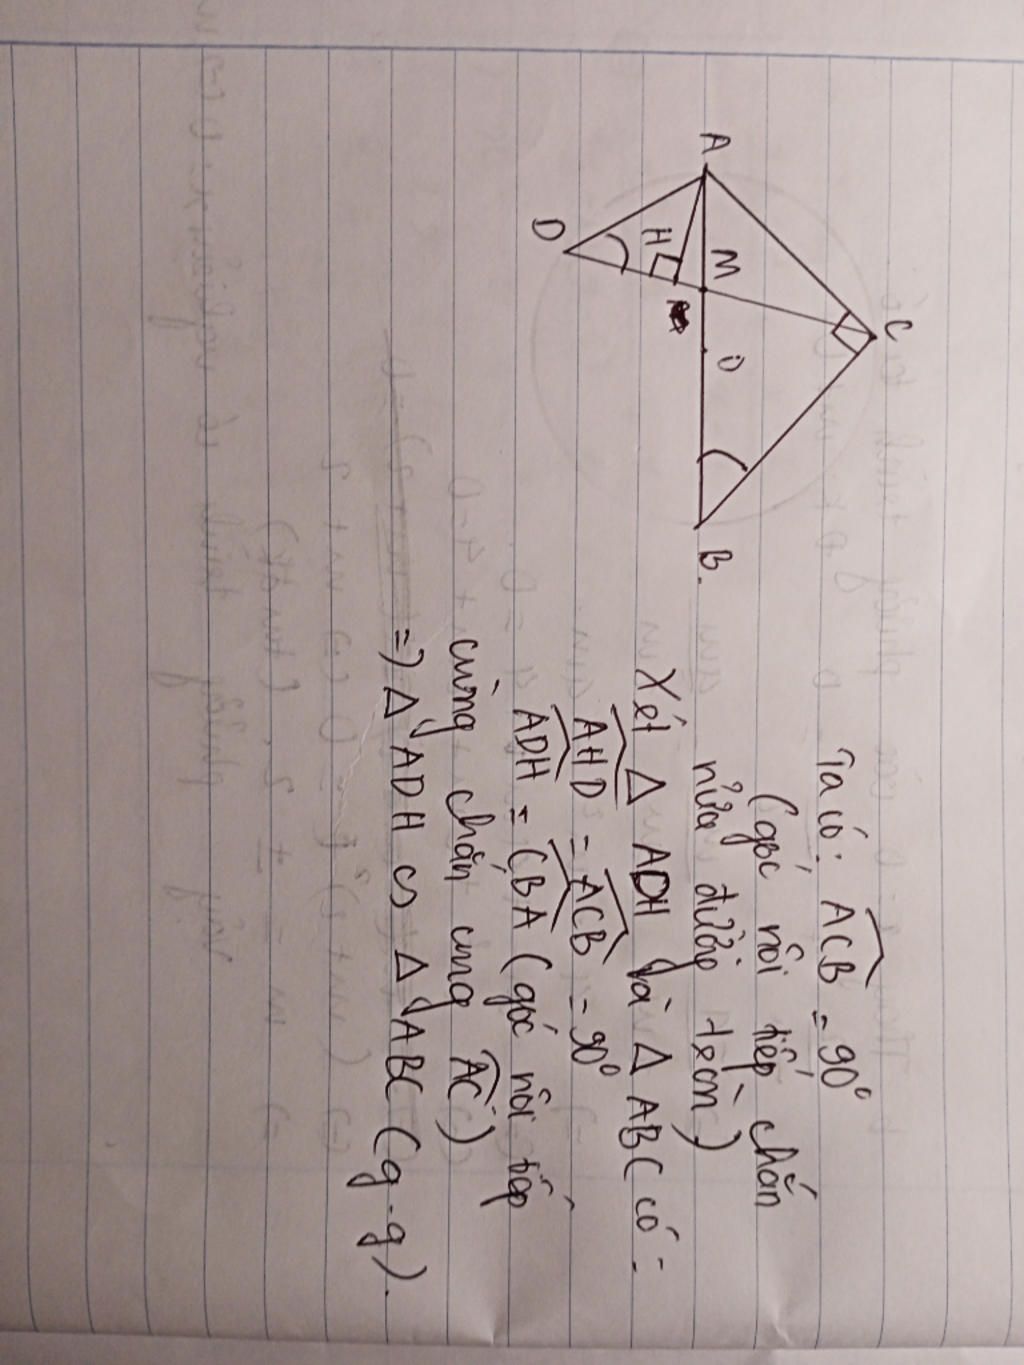 A
C
D
H
M
O
B.
Ta có: ACB = 90°
(góc nội tiếp chắn
nửa đường tròn)
Xét Δ ADH và Δ ABC có:
AHD = ACB = 90°
ADH = CBA (góc nội tiếp
cùng chắn cung AC)
=> Δ ADH ∽ Δ ABC (g.g).